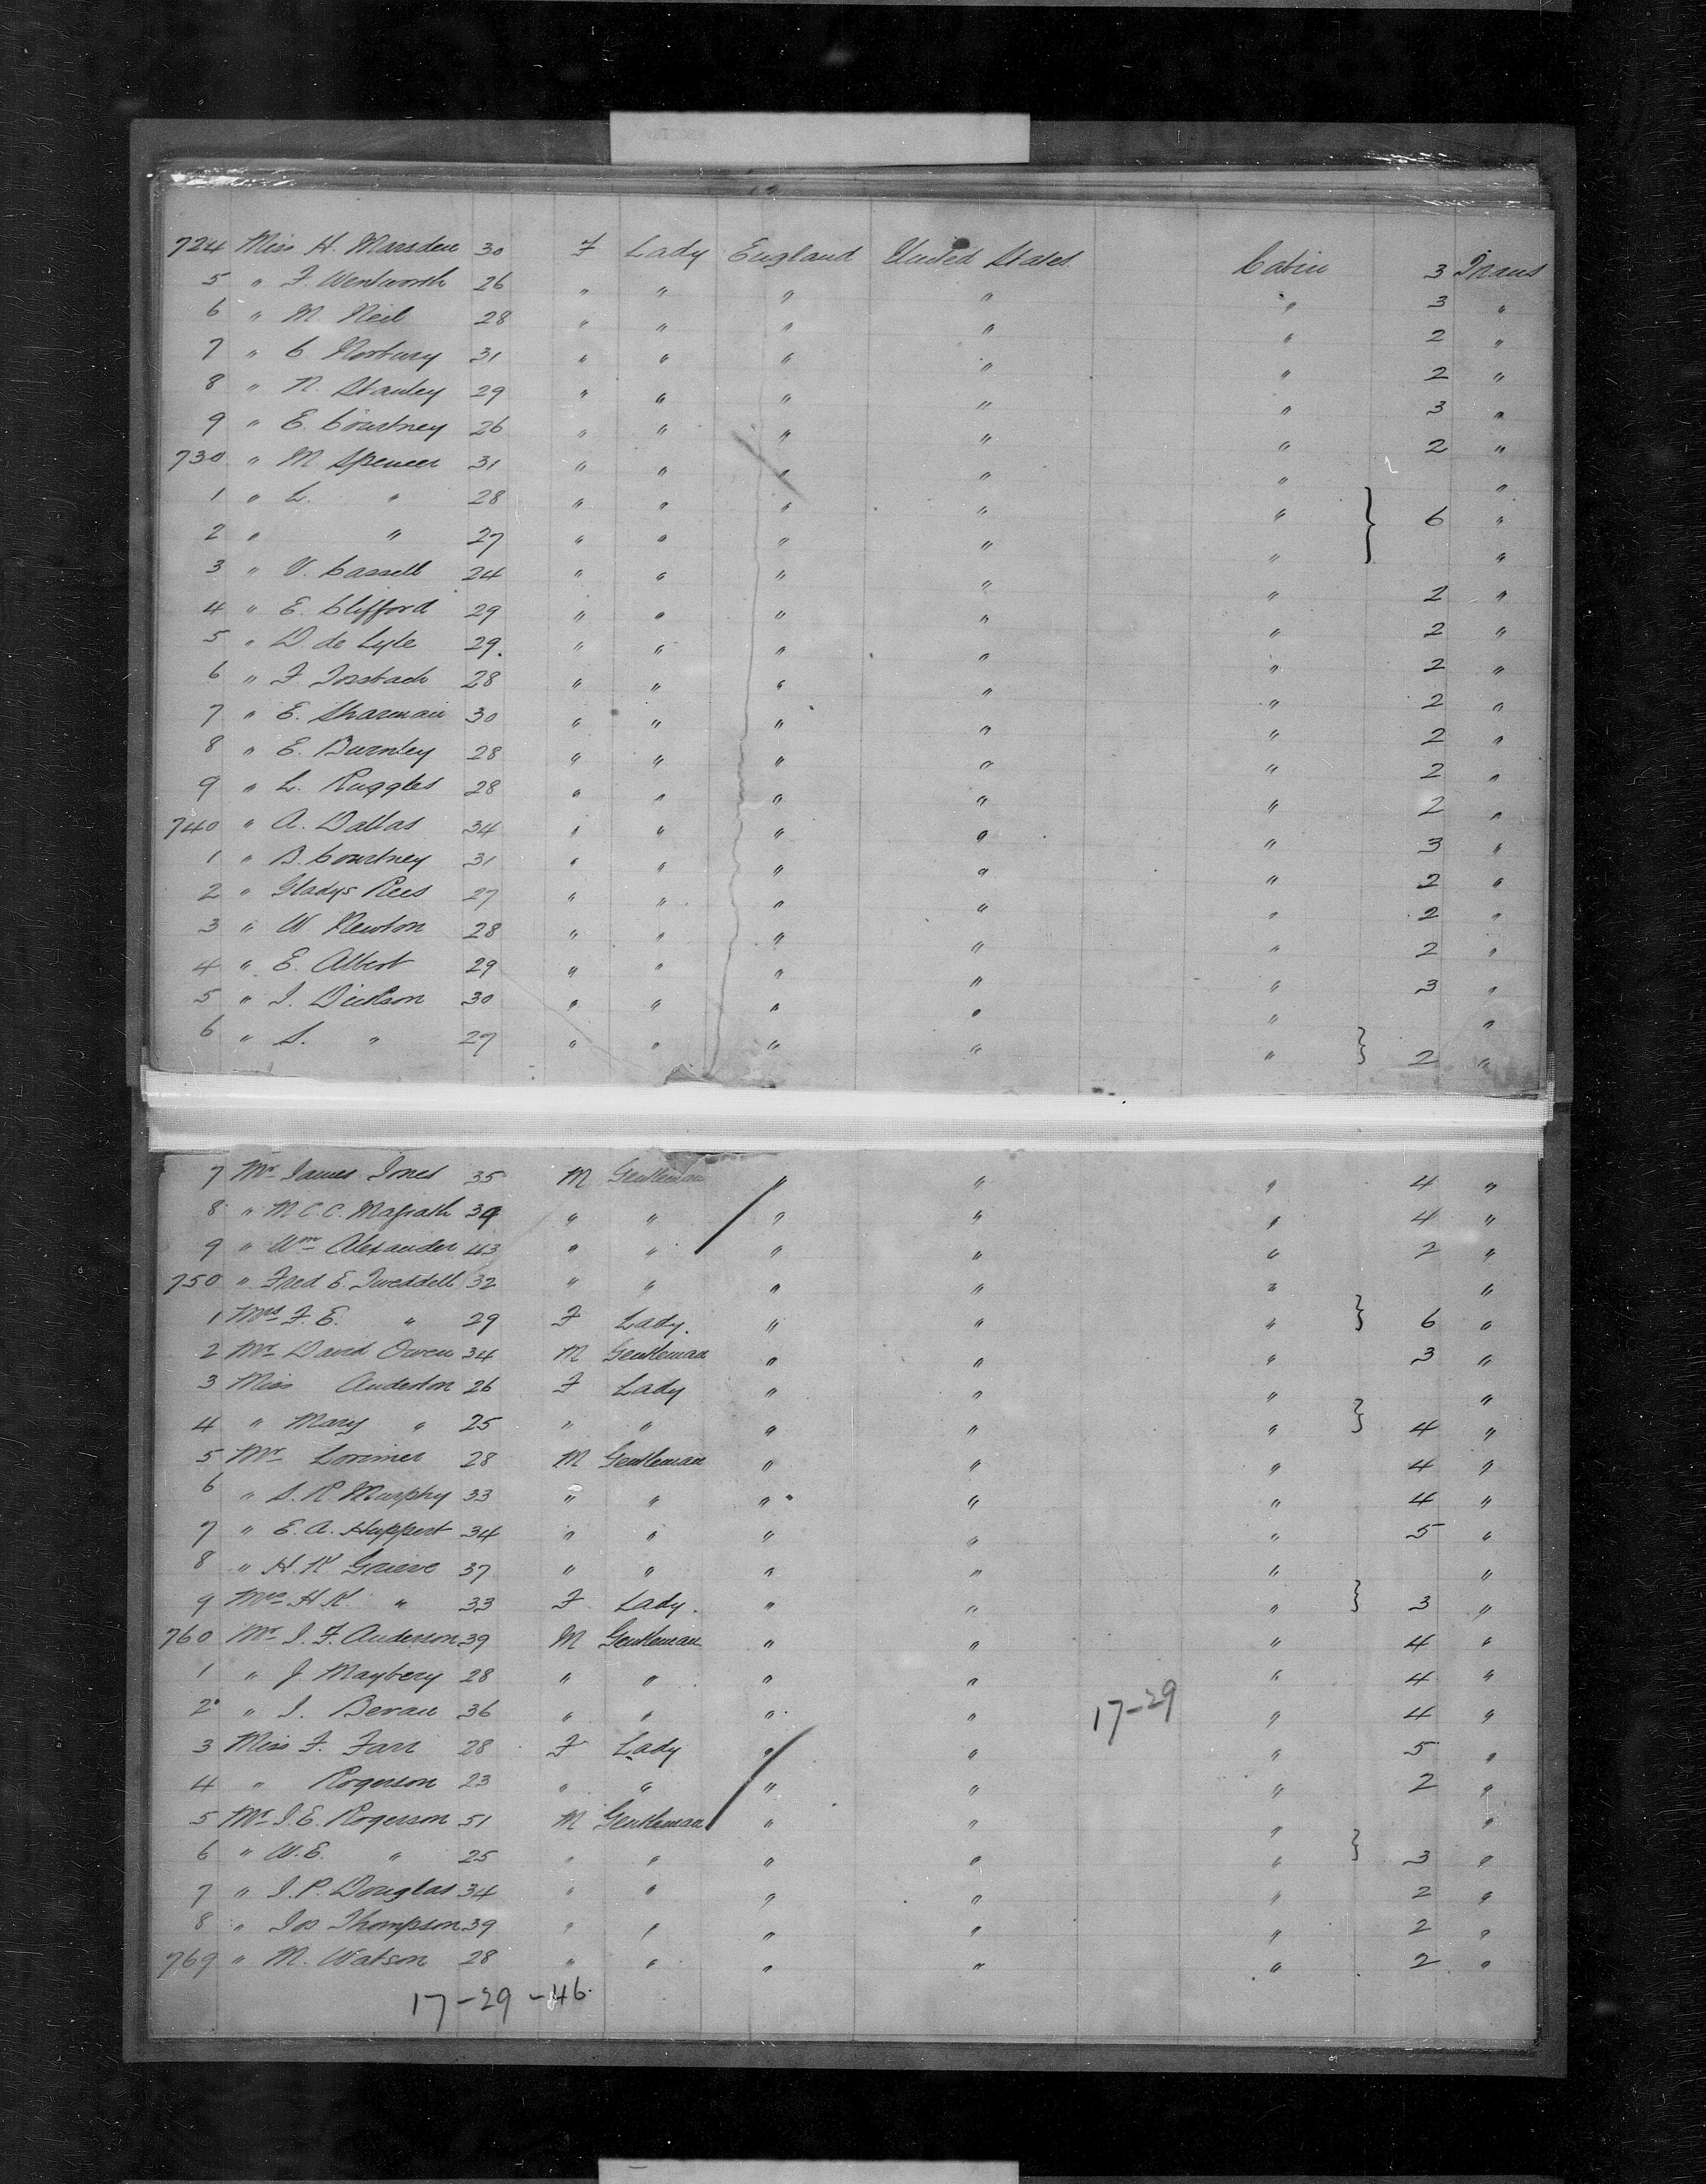 724 Miss H. Marsden 30 F Lady England United States Cabin 3 Trans
5 " F. Wentworth 26 " " " " " 3 "
6 " M. Neil 28 " " " " " 2 "
7 " C. Norbury 31 " " " " " 2 "
8 " N. Stanley 29 " " " " " 3 "
9 " E. Courtney 26 " " " " " 2 "
730 " M Spencer 31 " " " " " "
1 " L. " 28 " " " " " } 6 "
2 " " 27 " " " " " "
3 " V. Cassell 24 " " " " " 2 "
4 " E. Clifford 29 " " " " " 2 "
5 " D de Lyle 29. " " " " " 2 "
6 " F. 28 " " " " " 2 "
7 " E. Sharman 30 " " " " " 2 "
8 " E. Burnley 28 " " " " " 2 "
9 " L. Ruggles 28 " " " " " 2 "
740 " A. Dallas 34 " " " " " 3 "
1 " B. Courtney 31 " " " " " 2 "
2 " Gladys Rees 27 " " " " " 2 "
3 " W. Newton 28 " " " " " 2 "
4 " E. Albert 29 " " " " " 3 "
5 " J. Dickson 30 " " " " " "
6 " S. " 27 " " " " " } 2 "
7 Mr. James Jones 35 M Gentleman " " " 4 "
8 " M C.C. 39 " " " " " 4 "
9 " Wm Alexander 43 " " " " " 2 "
750 " Fred E. Tweddell 32 " " " " " "
1 Mrs F. E. " 29 F Lady. " " " } 6 "
2 Mr. David Owen 34 M Gentleman " " " 3 "
3 Miss Anderton 26 F Lady " " " "
4 " Mary " 25 " " " " " } 4 "
5 Mr. Lorimer 28 M Gentleman " " " 4 "
6 " S. R. Murphy 33 " " " " " 4 "
7 " E. A. Huppert 34 " " " " " 5 "
8 " H. K Grieve 37 " " " " " "
9 Mrs H K " 33 F Lady. " " " } 3 "
760 Mr. J. F. Anderson 39 M Gentleman " " " 4 "
1 " J. Maybery 28 " " " " " 4 "
2 " J. Bevan 36 " " " " 17-29 " 4 "
3 Miss F. Farr 28 F Lady " " " 5 "
4 " Rogerson 23 " " " " " 2 "
5 Mr. J. E. Rogerson 51 M Gentleman " " " "
6 " W. E. " 25 " " " " " } 3 "
7 " J. P. Douglas 34 " " " " " 2 "
8 " Jos Thompson 39 " " " " " 2 "
769 " M. Watson 28 " " " " " 2 "
17-29-46.